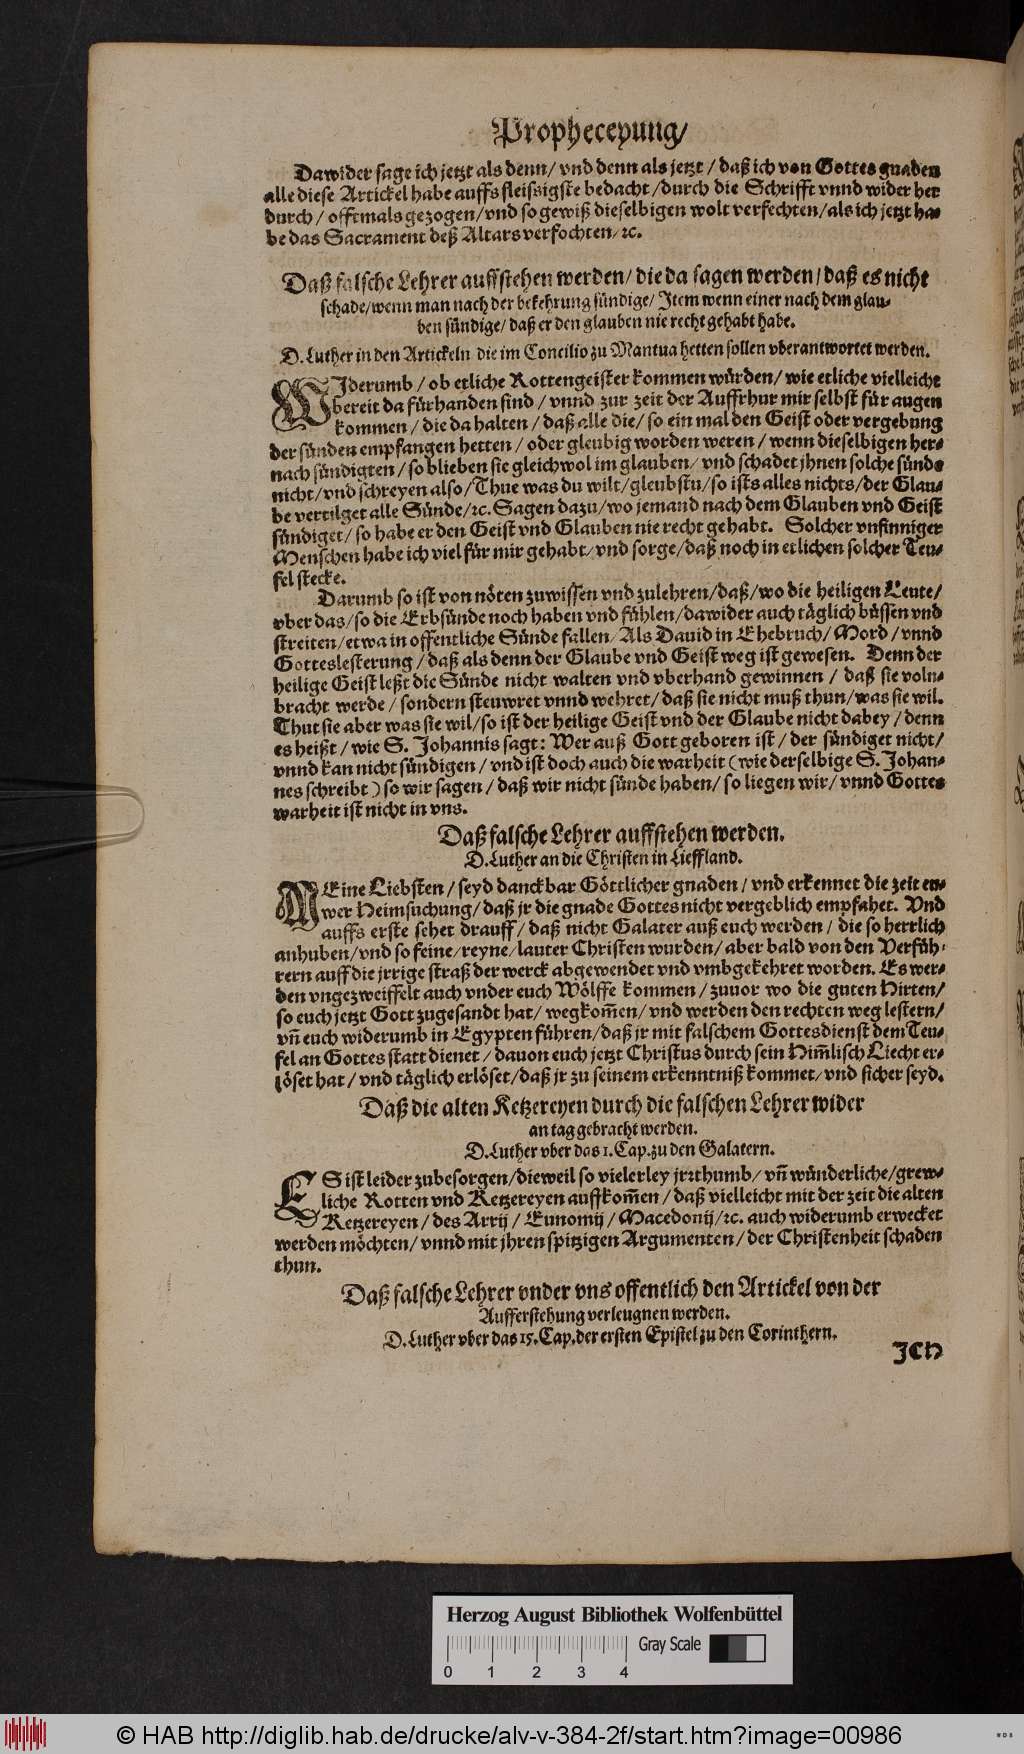 Propheceyung/
Dawider sage ich jetzt als denn/ vnd denn als jetzt / daß ich von Gottes gnaden
alle diese Artickel habe auffs fleissigste bedacht /durch die Schrifft vnnd wider her
durch / offtmals gezogen/vnd so gewiß dieselbigen wolt verfechten/als ich jetzt ha-
be das Sacrament deß Altars verfochten/ ꝛc.
Daß falsche Lehrer auffstehen werden/ die da sagen werden/ daß es nicht
schade/wenn man nach der bekehrung sündige/ Item wenn einer nach dem glau-
ben sündige/ daß er den glauben nie recht gehabt habe.
D. Luther in den Artickeln die im Concilio zu Mantua hetten sollen vberantwortet werden.
WIderumb / ob etliche Rottengeister kommen würden/ wie etliche vielleicht
bereit da fürhanden sind / vnnd zur zeit der Auffrhur mir selbst für augen
kommen / die da halten / daß alle die/ so ein mal den Geist oder vergebung
der sünden empfangen hetten / oder gleubig worden weren / wenn dieselbigen her-
nach sündigten / so blieben sie gleichwol im glauben/ vnd schadet jhnen solche sünde
nicht/vnd schreyen also/Thue was du wilt/gleubstu/so ists alles nichts/der Glau-
be vertilget alle Sünde/ꝛc. Sagen dazu/wo jemand nach dem Glauben vnd Geist
sündiget/ so habe er den Geist vnd Glauben nie recht gehabt. Solcher vnsinniger
Menschen habe ich viel für mir gehabt/ vnd sorge/daß noch in etlichen solcher Teu-
fel stecke.
Darumb so ist von nöten zuwissen vnd zulehren/daß/wo die heiligen Leute/
vber das/so die Erbsünde noch haben vnd fühlen/dawider auch täglich büssen vnd
streiten/etwa in offentliche Sünde fallen/ Als Dauid in Ehebruch/ Mord / vnnd
Gotteslesterung / daß als denn der Glaube vnd Geist weg ist gewesen. Denn der
heilige Geist leßt die Sünde nicht walten vnd vberhand gewinnen / daß sie voln-
bracht werde / sondern steuwret vnnd wehret/ daß sie nicht muß thun/was sie wil.
Thut sie aber was sie wil/so ist der heilige Geist vnd der Glaube nicht dabey / denn
es heißt / wie S. Johannis sagt: Wer auß Gott geboren ist / der sündiget nicht/
vnnd kan nicht sündigen / vnd ist doch auch die warheit (wie derselbige S. Johan-
nes schreibt) so wir sagen / daß wir nicht sünde haben/ so liegen wir/ vnnd Gottes
warheit ist nicht in vns.
Daß falsche Lehrer auffstehen werden.
D. Luther an die Christen in Lieffland.
MEine Liebsten / seyd danckbar Göttlicher gnaden / vnd erkennet die zeit eu-
wer Heimsuchung/ daß jr die gnade Gottes nicht vergeblich empfahet. Vnd
auffs erste sehet drauff / daß nicht Galater auß euch werden / die so herrlich
anhuben/vnd so feine/reyne/lauter Christen wurden/ aber bald von den Verfüh-
rern auff die jrrige straß der werck abgewendet vnd vmbgekehret worden. Es wer-
den vngezweiffelt auch vnder euch Wölffe kommen / zuuor wo die guten Hirten/
so euch jetzt Gott zugesandt hat/ wegkom̃en/ vnd werden den rechten weg lestern/
vñ euch widerumb in Egypten führen/daß jr mit falschem Gottesdienst dem Teu-
fel an Gottes statt dienet / dauon euch jetzt Christus durch sein Him̃lisch Liecht er-
löset hat / vnd täglich erlöset/daß jr zu seinem erkenntniß kommet/vnd sicher seyd.
Daß die alten Ketzereyen durch die falschen Lehrer wider
an tag gebracht werden.
D. Luther vber das 1. Cap. zu den Galatern.
ES ist leider zubesorgen/dieweil so vielerley jrꝛthumb/ vñ wünderliche/grew-
liche Rotten vnd Ketzereyen auffkom̃en / daß vielleicht mit der zeit die alten
Ketzereyen / des Arrij / Eunomij / Macedonij/ꝛc. auch widerumb erwecket
werden möchten/ vnnd mit jhren spitzigen Argumenten / der Christenheit schaden
thun.
Daß falsche Lehrer vnder vns offentlich den Artickel von der
Aufferstehung verleugnen werden.
D. Luther vber das 15. Cap. der ersten Epistel zu den Corinthern.
ICH
Herzog August Bibliothek Wolfenbüttel
Gray Scale
0 1 2 3 4
© HAB http://diglib.hab.de/drucke/alv-v-384-2f/start.htm?image=00986